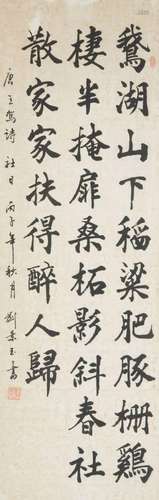 鵝湖山下稻粱肥豚柵鷄
棲半掩扉桑柘影斜春社
散家家扶得醉人歸
唐王駕詩 社日 丙子年秋月 劉 玉書